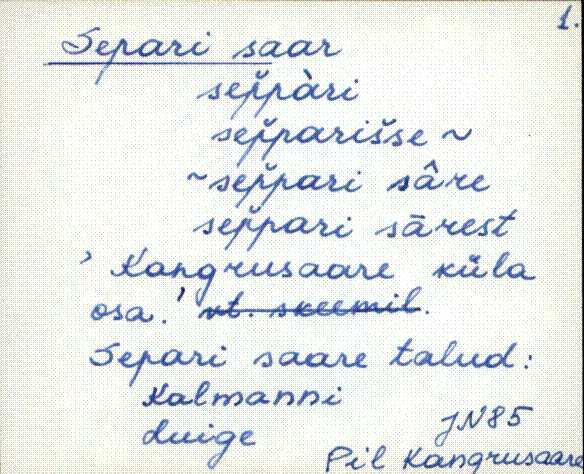 1.
Separi saar
sep̆p̆àri
sep̆p̆arišse ~
~ sep̆p̆ari sâre
sep̆p̆ari sārest
' Kangrusaare küla
osa.' vt. skeemil.
Separi saare talud:
Kalmanni
Luige
JN85
Pil Kangrusaare